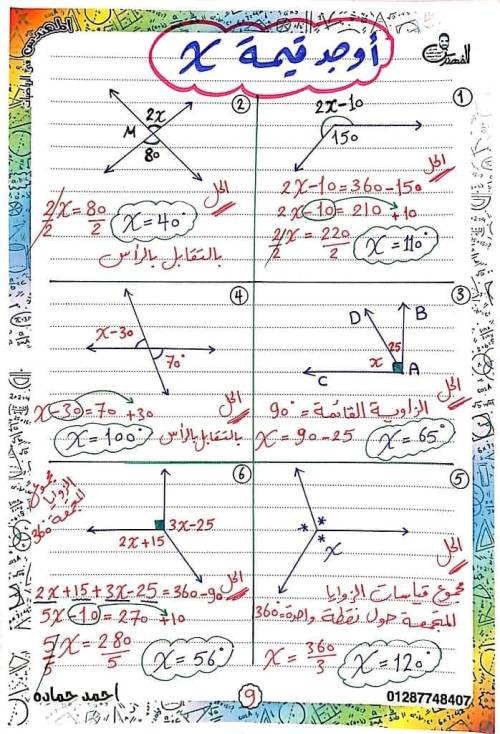 المهندس في الرياضيات
المهندس
أوجد قيمة x
①
2x-10
150
الحل
2x-10=360-150
2x-10=210 +10
2x/2=220/2
x=110°
②
2x
M
80
الحل
2x/2=80/2
x=40°
بالتقابل بالرأس
③
D
B
25
x
C
A
الحل
الزاوية القائمة = 90°
x=90-25
x=65°
④
x-30
70°
الحل
x-30=70 +30
x=100°
بالتقابل بالرأس
⑤
* *
*
x
الحل
مجموع قياسات الزوايا
المتجمعة حول نقطة واحدة=360
x=360/3
x=120°
⑥
مجموع
الزوايا
المتجمعة
360°
3x-25
2x+15
الحل
2x+15+3x-25=360-90
5x-10=270 +10
5x/5=280/5
x=56°
احمد حماده
9
01287748407